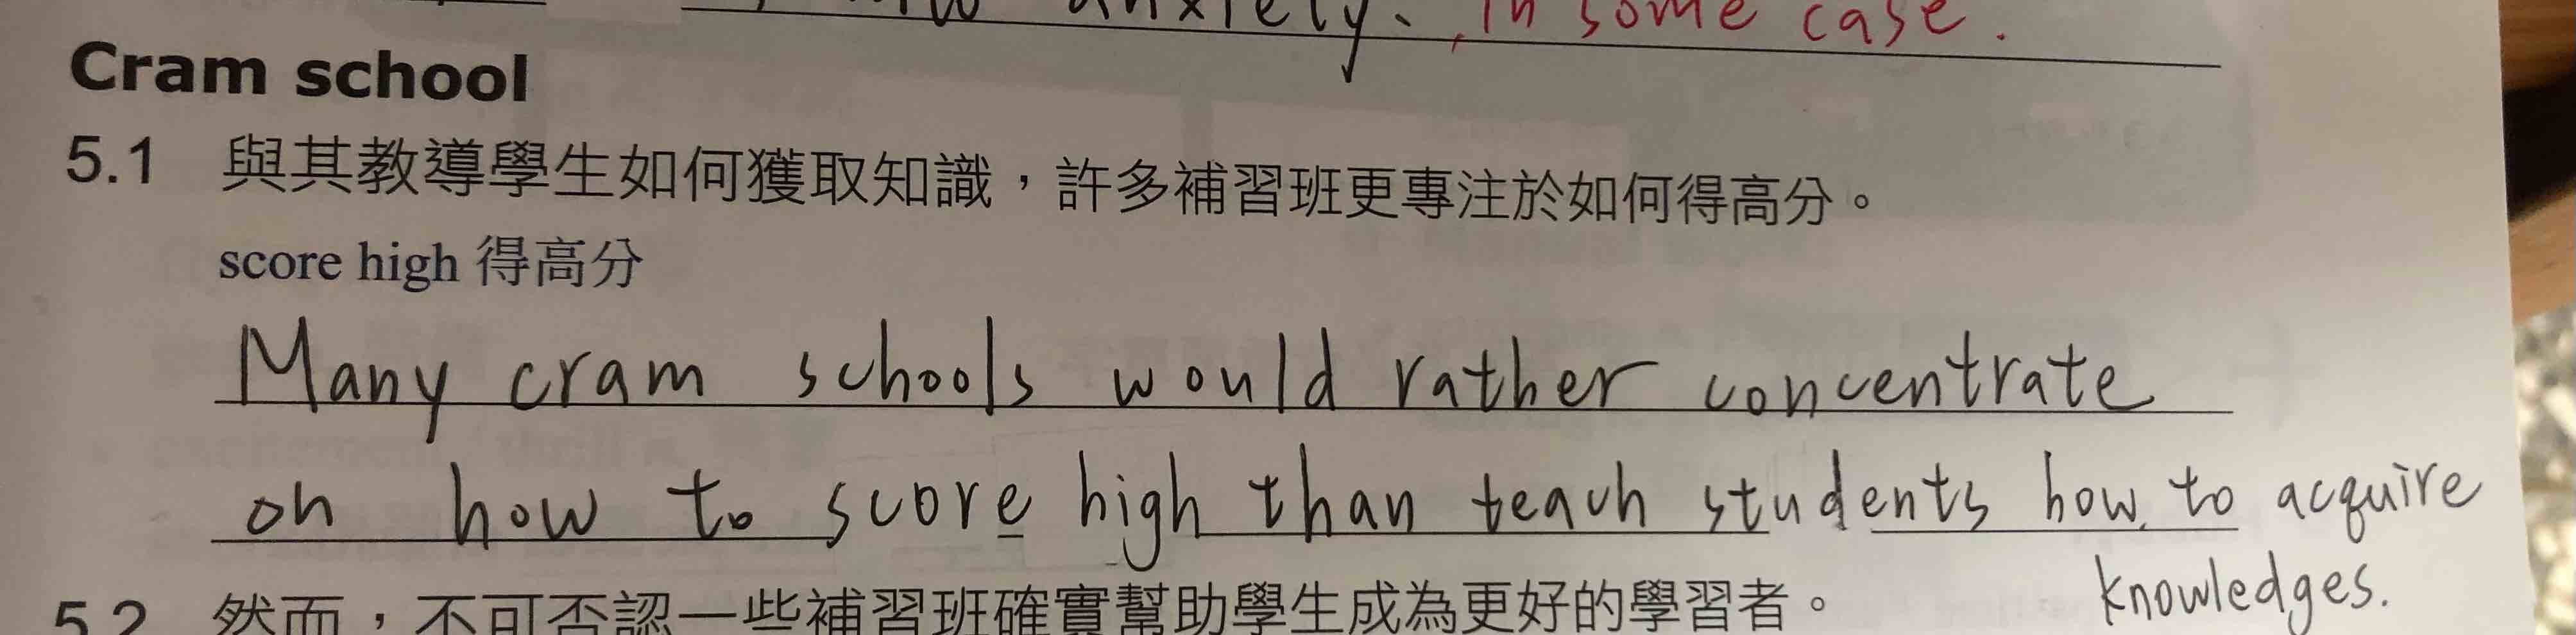 anxiety. , in some case.
Cram school
5.1 與其教導學生如何獲取知識，許多補習班更專注於如何得高分。
score high 得高分
Many cram schools would rather concentrate
on how to score high than teach students how to acquire
knowledges.
5.2 然而，不可否認一些補習班確實幫助學生成為更好的學習者。